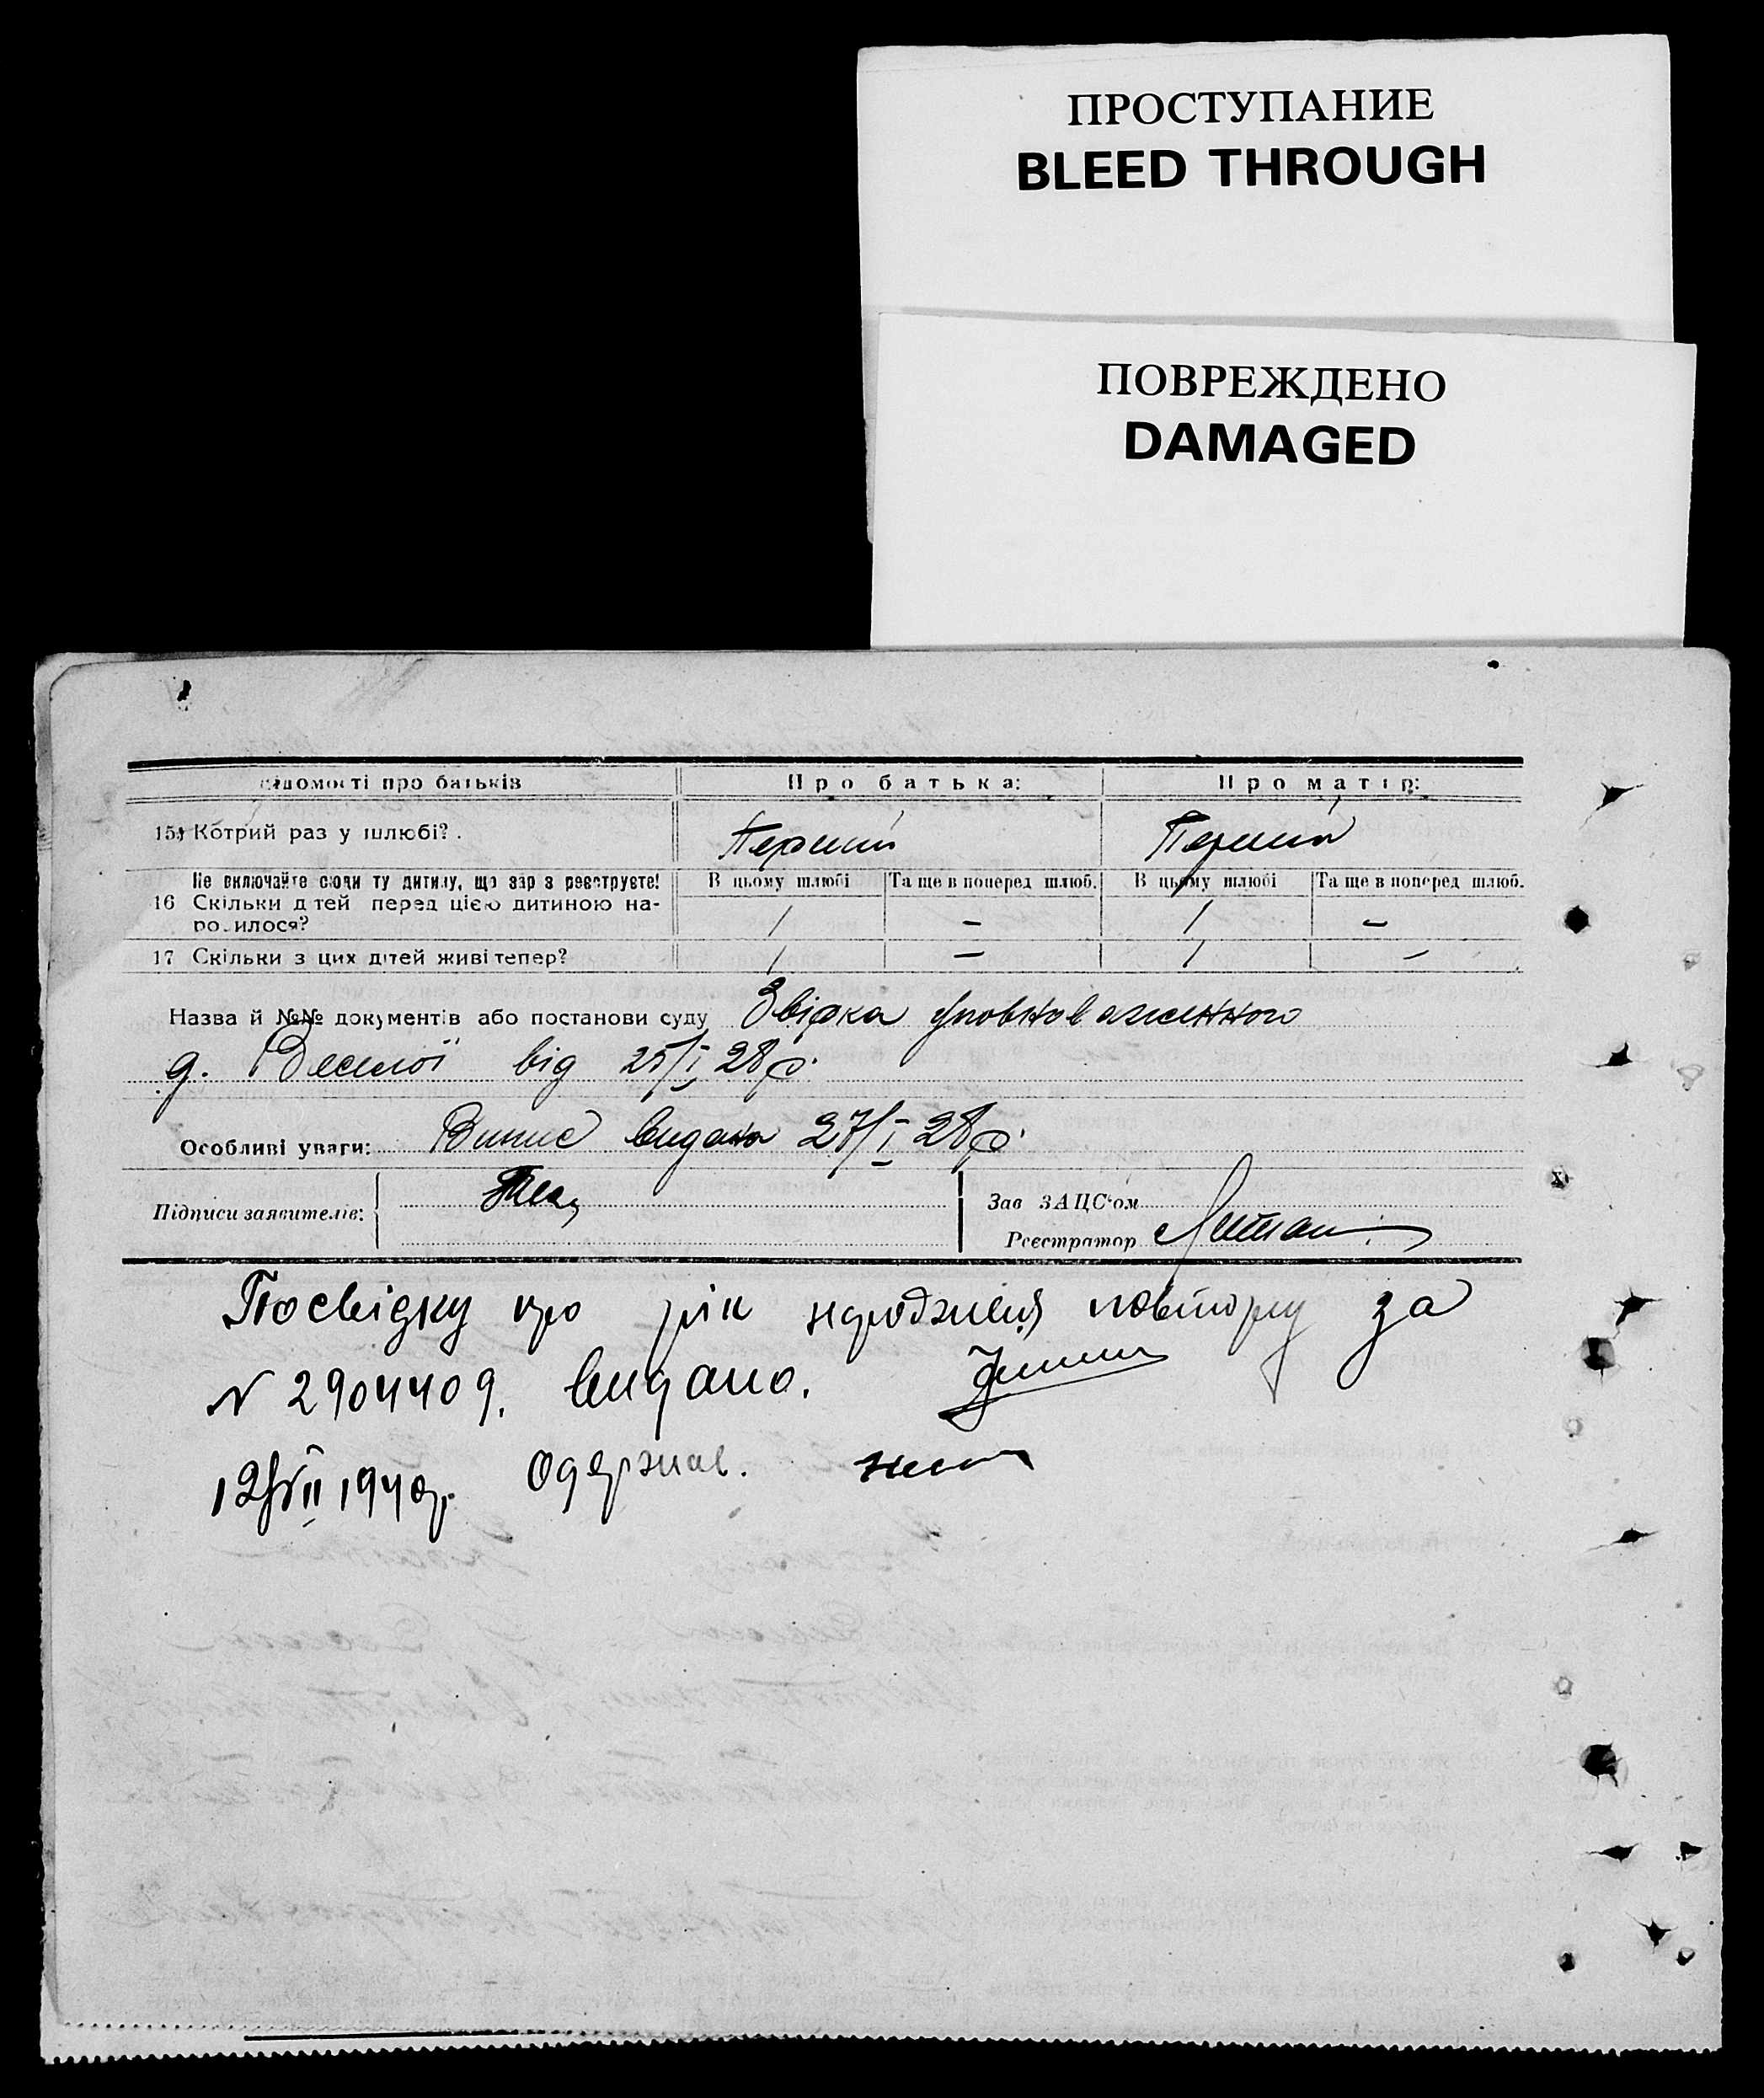 ПРОСТУПАНИЕ
BLEED THROUGH
ПОВРЕЖДЕНО
DAMAGED
відомості про батьків Про батька: Про матір:
15) Котрий раз у шлюбі? . Перший Перший
Не включайте сюди ту дитину, що зараз реєструєте! В цьому шлюбі Та ще в поперед шлюб. В цьому шлюбі Та ще в поперед шлюб.
16 Скільки дітей перед цією дитиною на-
родилося? 1 — 1 —
17 Скільки з цих дітей живі тепер? 1 — 1 —
Назва й №№ документів або постанови суду Звідка уповноваженного
д. Веселої від 25/I 28 р.
Особливі уваги: Випис видана 27/I 28 р.
Підписи заявителів:
Зав ЗАЦС'ом
Реєстратор
Посвідку про рік народження повторну за
N 2904409. видано.
12/VII 1940 р. Одержав.